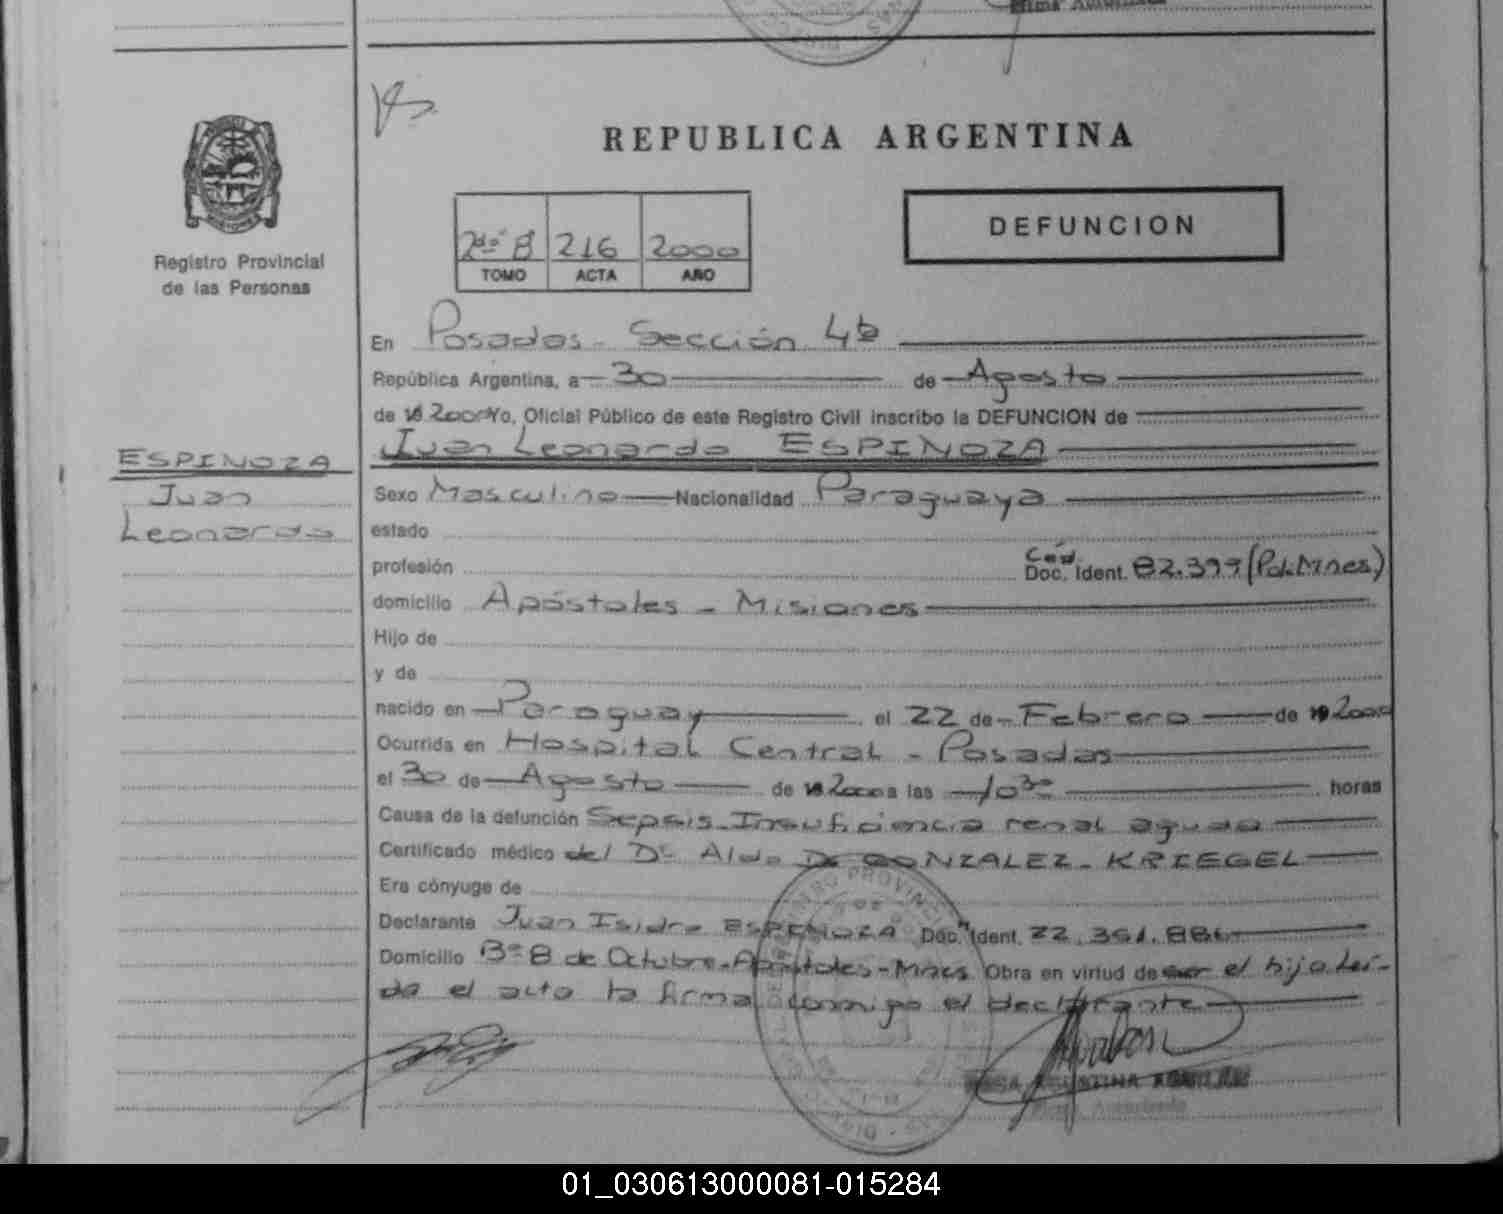 Firma Autorizada
REPUBLICA ARGENTINA
DEFUNCION
2do B 216 2000
TOMO ACTA AÑO
Registro Provincial
de las Personas
En Posadas - Sección 4ta
República Argentina, a 30 de Agosto
de 19 2000 Yo, Oficial Público de este Registro Civil inscribo la DEFUNCION de
Juan Leonardo ESPINOZA
ESPINOZA
Juan
Leonardo
Sexo Masculino Nacionalidad Paraguaya
estado
profesión Céd. Doc. Ident. 82.399 (Pol. Mnes.)
domicilio Apóstoles - Misiones
Hijo de
y de
nacido en Paraguay el 22 de Febrero de 19 2000
Ocurrida en Hospital Central - Posadas
el 30 de Agosto de 19 2000 a las 10 30 horas
Causa de la defunción Sepsis - Insuficiencia renal aguda
Certificado médico del Dr. Aldo D. GONZALEZ - KRIEGEL
Era cónyuge de
Declarante Juan Isidro ESPINOZA Doc. Ident. 22.351.886
Domicilio Bº 8 de Octubre - Apóstoles - Mnes. Obra en virtud de ser el hijo. Leí-
da el acta la firma conmigo el declarante
ROSA AGUSTINA AGUILAR
Firma Autorizada
01_030613000081-015284